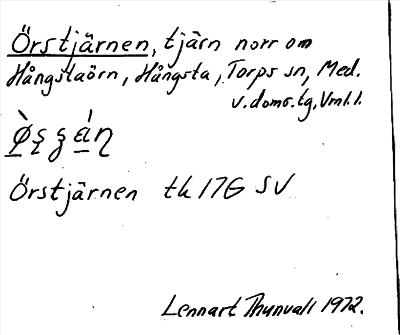 Örstjärnen, tjärn norr om
Hångstaörn, Hångsta, Torps sn, Med.
v. doms. tg, Vml. l.
Örstjärnen tk 17G SV
Lennart Thunvall 1972.